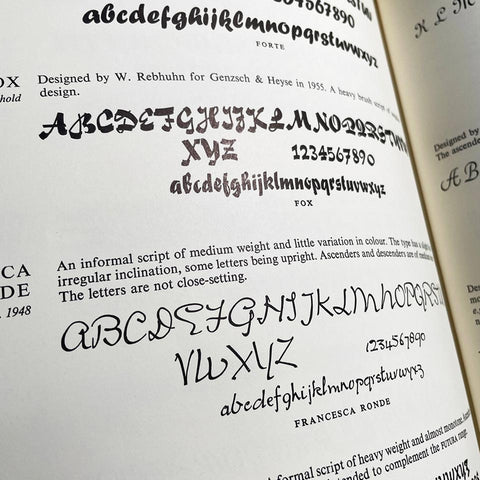 1234567890
abcdefghijklmnopqrstuvwxyz
FORTE
OX
hold
Designed by W. Rebhuhn for Genzsch & Heyse in 1955. A heavy brush script of
design.
ABCDEFGHIJKLMNOPQRSTUVW
XYZ 1234567890
abcdefghijklmnopqrstuvwxyz
FOX
CA
DE
1948
An informal script of medium weight and little variation in colour. The type has a slight
irregular inclination, some letters being upright. Ascenders and descenders are of medium
The letters are not close-setting.
ABCDEFGHIJKLMNOPQRST
VWXYZ 1234567890
abcdefghijklmnopqrstuvwxyz
FRANCESCA RONDE
formal script of heavy weight and almost monotone,
tended to complement the FUTURA range.
K L M
Designed by
The ascende
A B